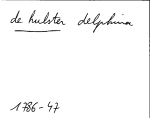 de hulster delphina
1786-47